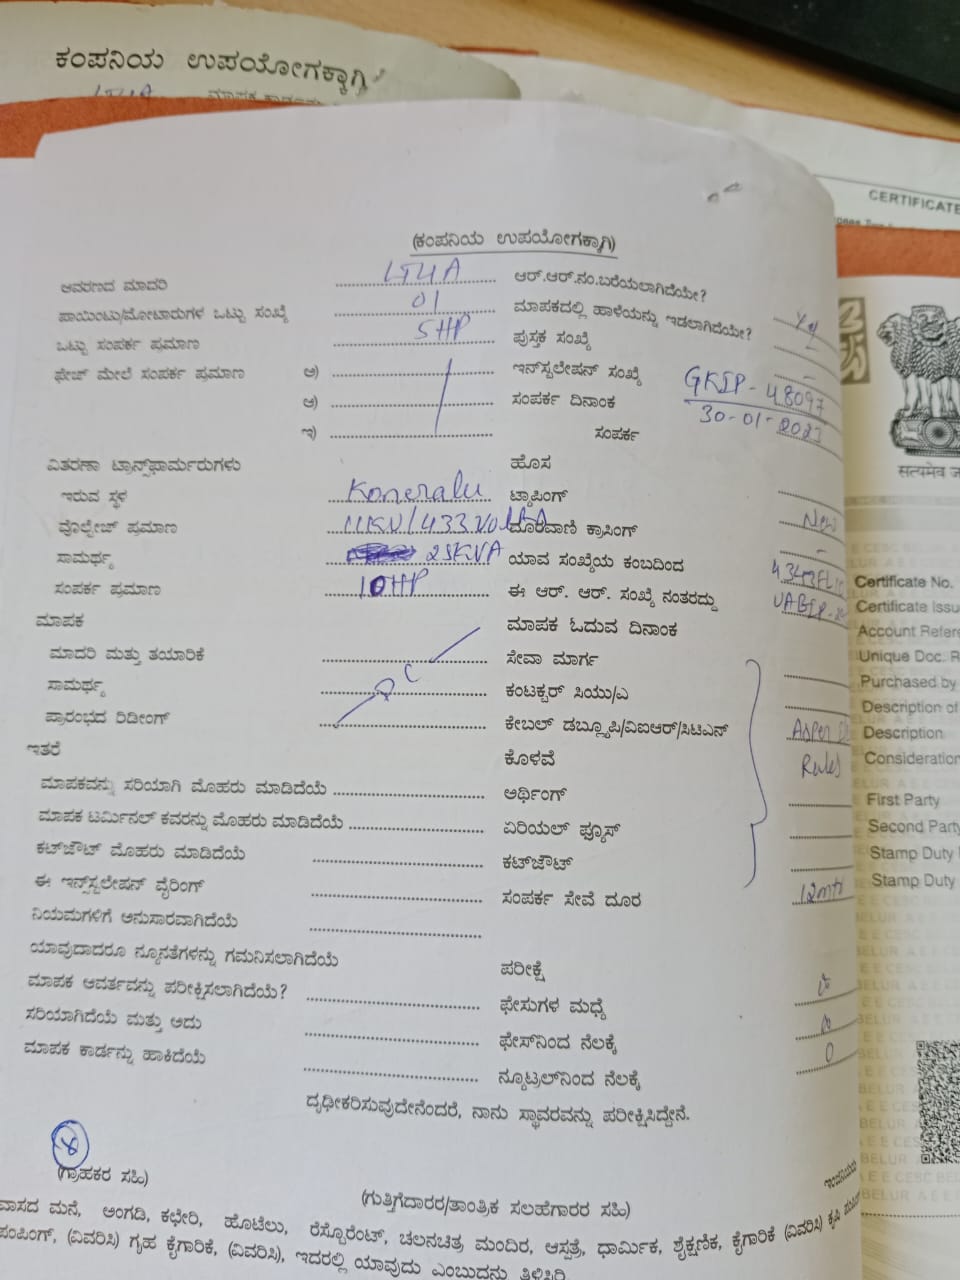 ಕಂಪನಿಯ ಉಪಯೋಗಕ್ಕಾಗಿ
CERTIFICATE
(ಕಂಪನಿಯ ಉಪಯೋಗಕ್ಕಾಗಿ)
ಆವರಣದ ಮಾದರಿ LT4A ಆರ್.ಆರ್.ನಂ.ಬರೆಯಲಾಗಿದೆಯೇ?
ಪಾಯಿಂಟು/ಮೋಟಾರುಗಳ ಒಟ್ಟು ಸಂಖ್ಯೆ 01 ಮಾಪಕದಲ್ಲಿ ಹಾಳೆಯನ್ನು ಇಡಲಾಗಿದೆಯೇ?
ಒಟ್ಟು ಸಂಪರ್ಕ ಪ್ರಮಾಣ 5HP ಪುಸ್ತಕ ಸಂಖ್ಯೆ
ಫೇಜ್ ಮೇಲೆ ಸಂಪರ್ಕ ಪ್ರಮಾಣ ಅ) ಇನ್‌ಸ್ಟಲೇಷನ್ ಸಂಖ್ಯೆ GKIP-48097
ಆ) ಸಂಪರ್ಕ ದಿನಾಂಕ 30-01-2023
ಇ) ಸಂಪರ್ಕ
ವಿತರಣಾ ಟ್ರಾನ್ಸ್‌ಫಾರ್ಮರುಗಳು ಹೊಸ
ಇರುವ ಸ್ಥಳ Koneralu ಟ್ಯಾಪಿಂಗ್ New
ವೊಲ್ಟೇಜ್ ಪ್ರಮಾಣ 11KV/433 Volts ದೂರವಾಣಿ ಕ್ರಾಸಿಂಗ್ -
ಸಾಮರ್ಥ್ಯ 25KVA ಯಾವ ಸಂಖ್ಯೆಯ ಕಂಬದಿಂದ
ಸಂಪರ್ಕ ಪ್ರಮಾಣ 10HP ಈ ಆರ್. ಆರ್. ಸಂಖ್ಯೆ ನಂತರದ್ದು
ಮಾಪಕ ಮಾಪಕ ಓದುವ ದಿನಾಂಕ
ಮಾದರಿ ಮತ್ತು ತಯಾರಿಕೆ ಸೇವಾ ಮಾರ್ಗ
ಸಾಮರ್ಥ್ಯ ಕಂಟಕ್ಟರ್ ಸಿಯು/ಎ
ಪ್ರಾರಂಭದ ರಿಡೀಂಗ್ ಕೇಬಲ್ ಡಬ್ಲ್ಯೂಪಿ/ವಿಐಆರ್/ಸಿಟಿಎಸ್ As per
ಇತರೆ ಕೊಳವೆ Rules
ಮಾಪಕವನ್ನು ಸರಿಯಾಗಿ ಮೊಹರು ಮಾಡಿದೆಯೆ ಅರ್ಥಿಂಗ್
ಮಾಪಕ ಟರ್ಮಿನಲ್ ಕವರನ್ನು ಮೊಹರು ಮಾಡಿದೆಯೆ ಏರಿಯಲ್ ಫ್ಯೂಸ್
ಕಟ್‌ಔಟ್ ಮೊಹರು ಮಾಡಿದೆಯೆ ಕಟ್‌ಔಟ್
ಈ ಇನ್ಸ್‌ಸ್ಟಲೇಷನ್ ವೈರಿಂಗ್ ಸಂಪರ್ಕ ಸೇವೆ ದೂರ 12mtr
ನಿಯಮಗಳಿಗೆ ಅನುಸಾರವಾಗಿದೆಯೆ
ಯಾವುದಾದರೂ ನ್ಯೂನತೆಗಳನ್ನು ಗಮನಿಸಲಾಗಿದೆಯೆ ಪರೀಕ್ಷೆ
ಮಾಪಕ ಆವರ್ತವನ್ನು ಪರೀಕ್ಷಿಸಲಾಗಿದೆಯೆ? ಫೇಸುಗಳ ಮಧ್ಯೆ
ಸರಿಯಾಗಿದೆಯೆ ಮತ್ತು ಅದು ಫೇಸ್‌ನಿಂದ ನೆಲಕ್ಕೆ
ಮಾಪಕ ಕಾರ್ಡನ್ನು ಹಾಕಿದೆಯೆ ನ್ಯೂಟ್ರಲ್‌ನಿಂದ ನೆಲಕ್ಕೆ
ದೃಢೀಕರಿಸುವುದೇನೆಂದರೆ, ನಾನು ಸ್ಥಾವರವನ್ನು ಪರೀಕ್ಷಿಸಿದ್ದೇನೆ.
(ಗ್ರಾಹಕರ ಸಹಿ)
(ಗುತ್ತಿಗೆದಾರರ/ತಾಂತ್ರಿಕ ಸಲಹೆಗಾರರ ಸಹಿ)
ವಾಸದ ಮನೆ, ಅಂಗಡಿ, ಕಛೇರಿ, ಹೊಟೆಲು, ರೆಸ್ಟೋರೆಂಟ್, ಚಲನಚಿತ್ರ ಮಂದಿರ, ಆಸ್ಪತ್ರೆ, ಧಾರ್ಮಿಕ, ಶೈಕ್ಷಣಿಕ, ಕೈಗಾರಿಕೆ (ವಿವರಿಸಿ) ಕೃಷಿ
ಪಂಪಿಂಗ್, (ವಿವರಿಸಿ) ಗೃಹ ಕೈಗಾರಿಕೆ, (ವಿವರಿಸಿ), ಇದರಲ್ಲಿ ಯಾವುದು ಎಂಬುದನ್ನು ತಿಳಿಸಿರಿ
Certificate No.
Certificate Issu
Account Refere
Unique Doc. R
Purchased by
Description of
Description
Consideration
First Party
Second Party
Stamp Duty
Stamp Duty